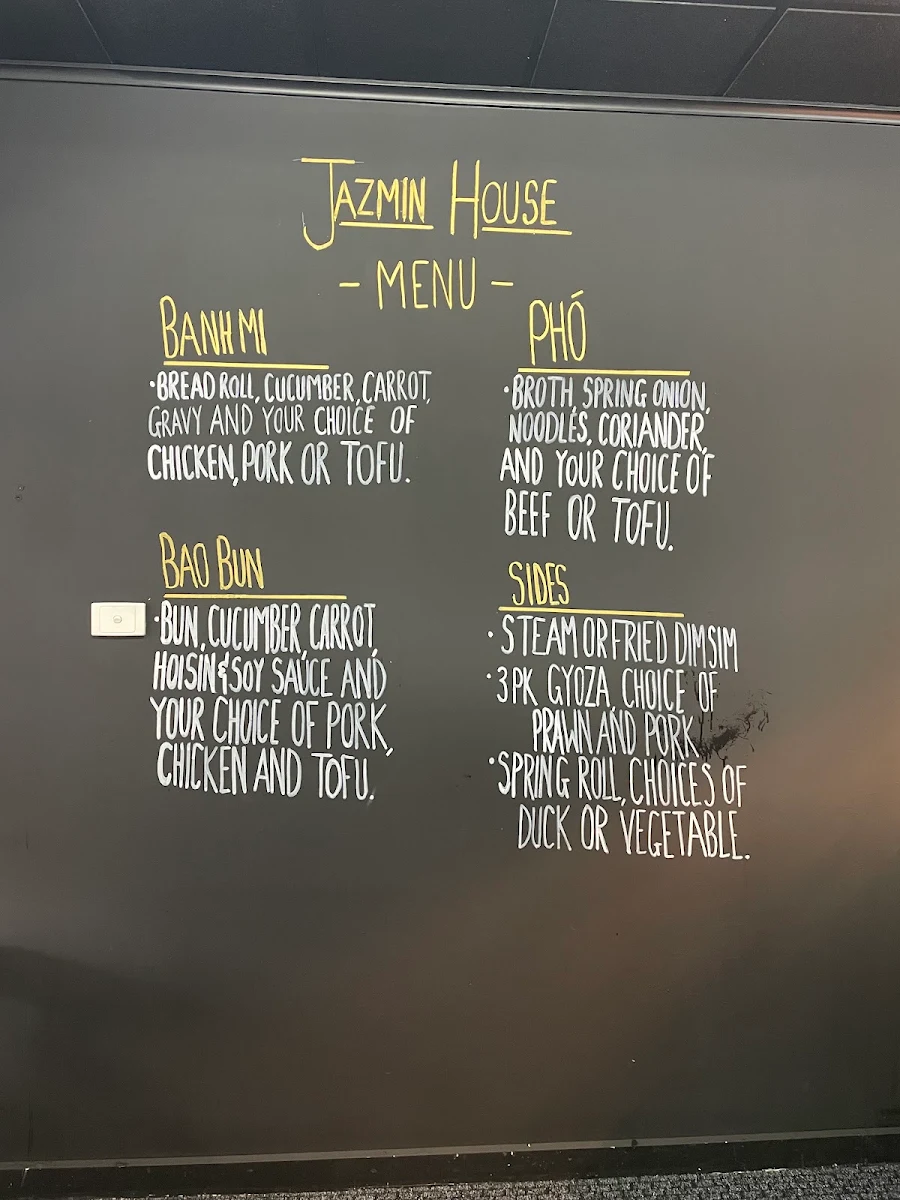 JAZMIN HOUSE
- MENU -
BANH MI
·BREAD ROLL, CUCUMBER, CARROT,
GRAVY AND YOUR CHOICE OF
CHICKEN, PORK OR TOFU.
PHÓ
·BROTH, SPRING ONION,
NOODLES, CORIANDER,
AND YOUR CHOICE OF
BEEF OR TOFU.
BAO BUN
·BUN, CUCUMBER, CARROT,
HOISIN & SOY SAUCE AND
YOUR CHOICE OF PORK,
CHICKEN AND TOFU.
SIDES
· STEAM OR FRIED DIM SIM
· 3PK GYOZA, CHOICE OF
PRAWN AND PORK
·SPRING ROLL, CHOICES OF
DUCK OR VEGETABLE.